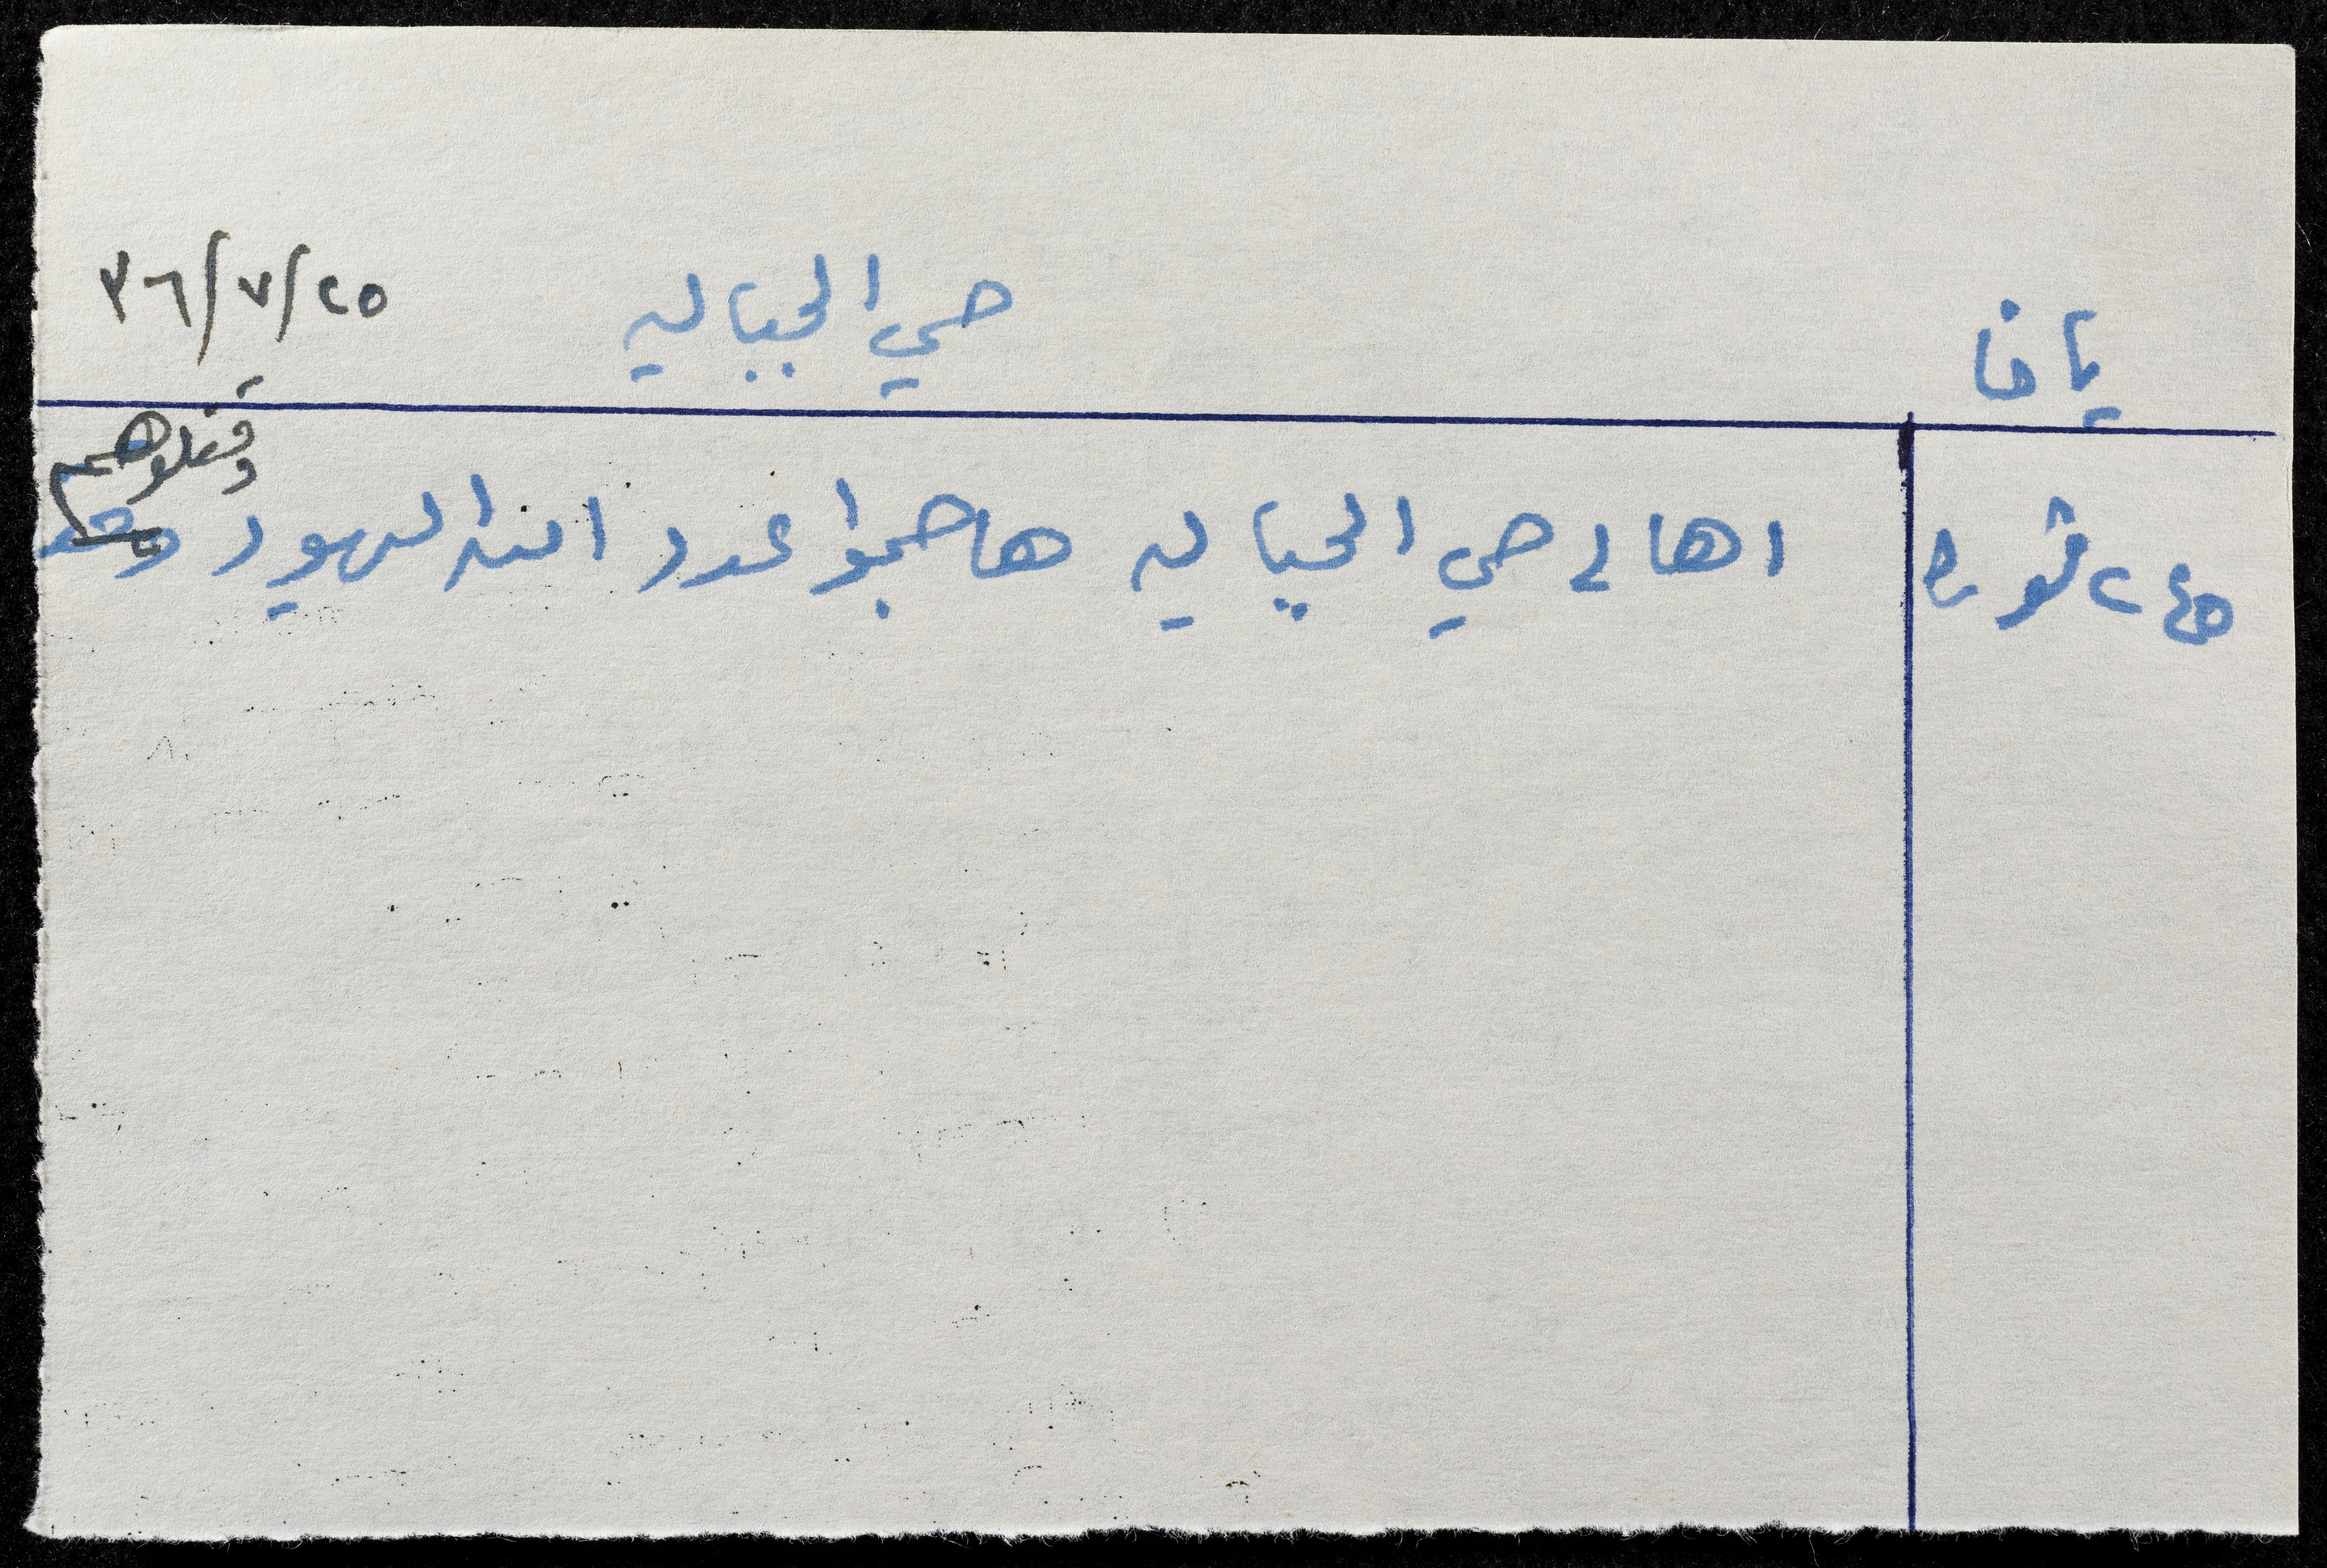 يافا
حي الجباليه
٢٥/٧/٣٦
٢٤٥ ثوره
اهالي حي الجباليه هاجموا عدد اليهود
وقتلوهم